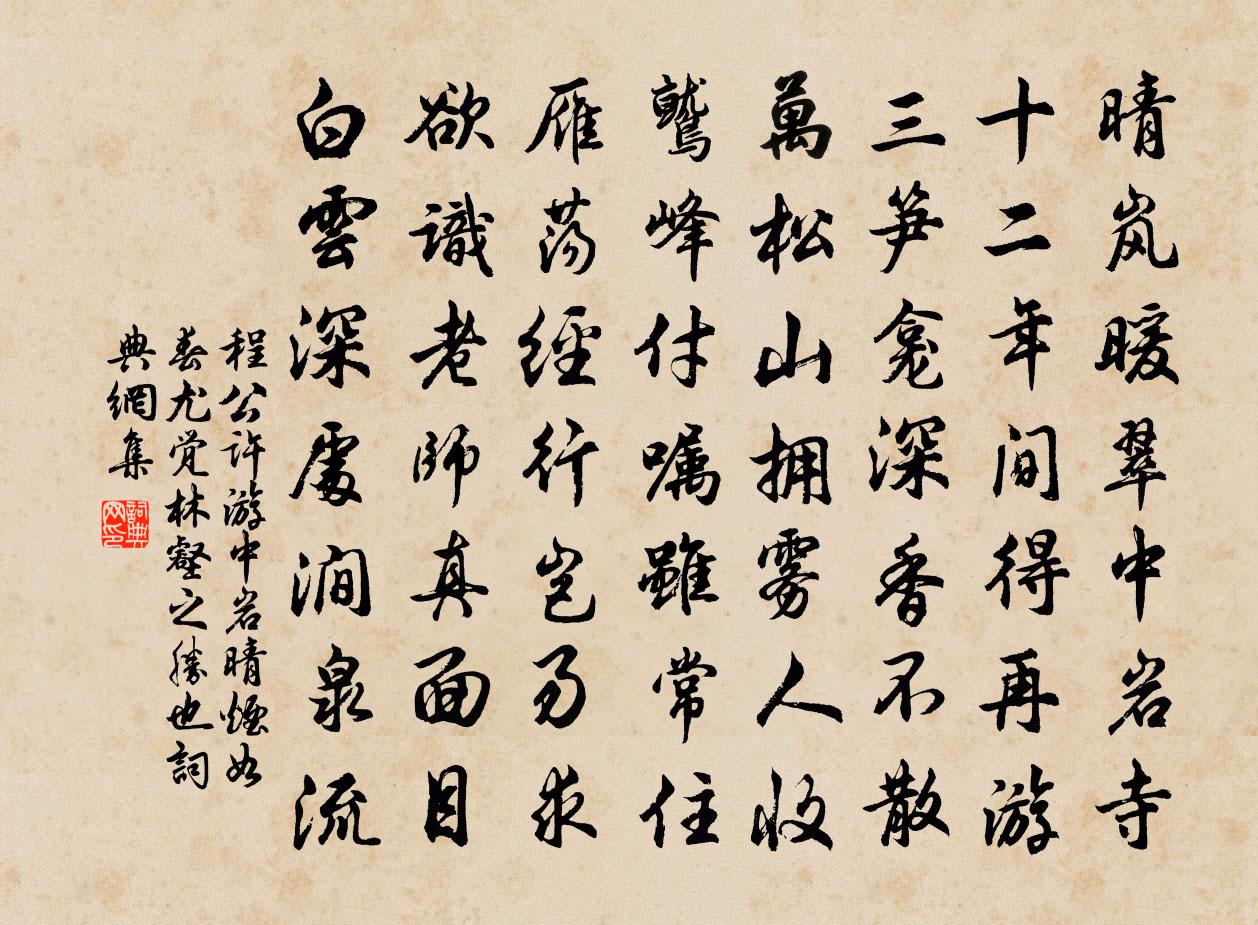 晴岚暖翠中岩寺
十二年间得再游
三笋龛深香不散
萬松山拥雾人收
鹫峰付嘱雖常住
雁荡經行岂易求
欲識老师真面目
白雲深處涧泉流
程公许游中岩晴煙如
春尤觉林壑之勝也詞
典網集
詞典网印